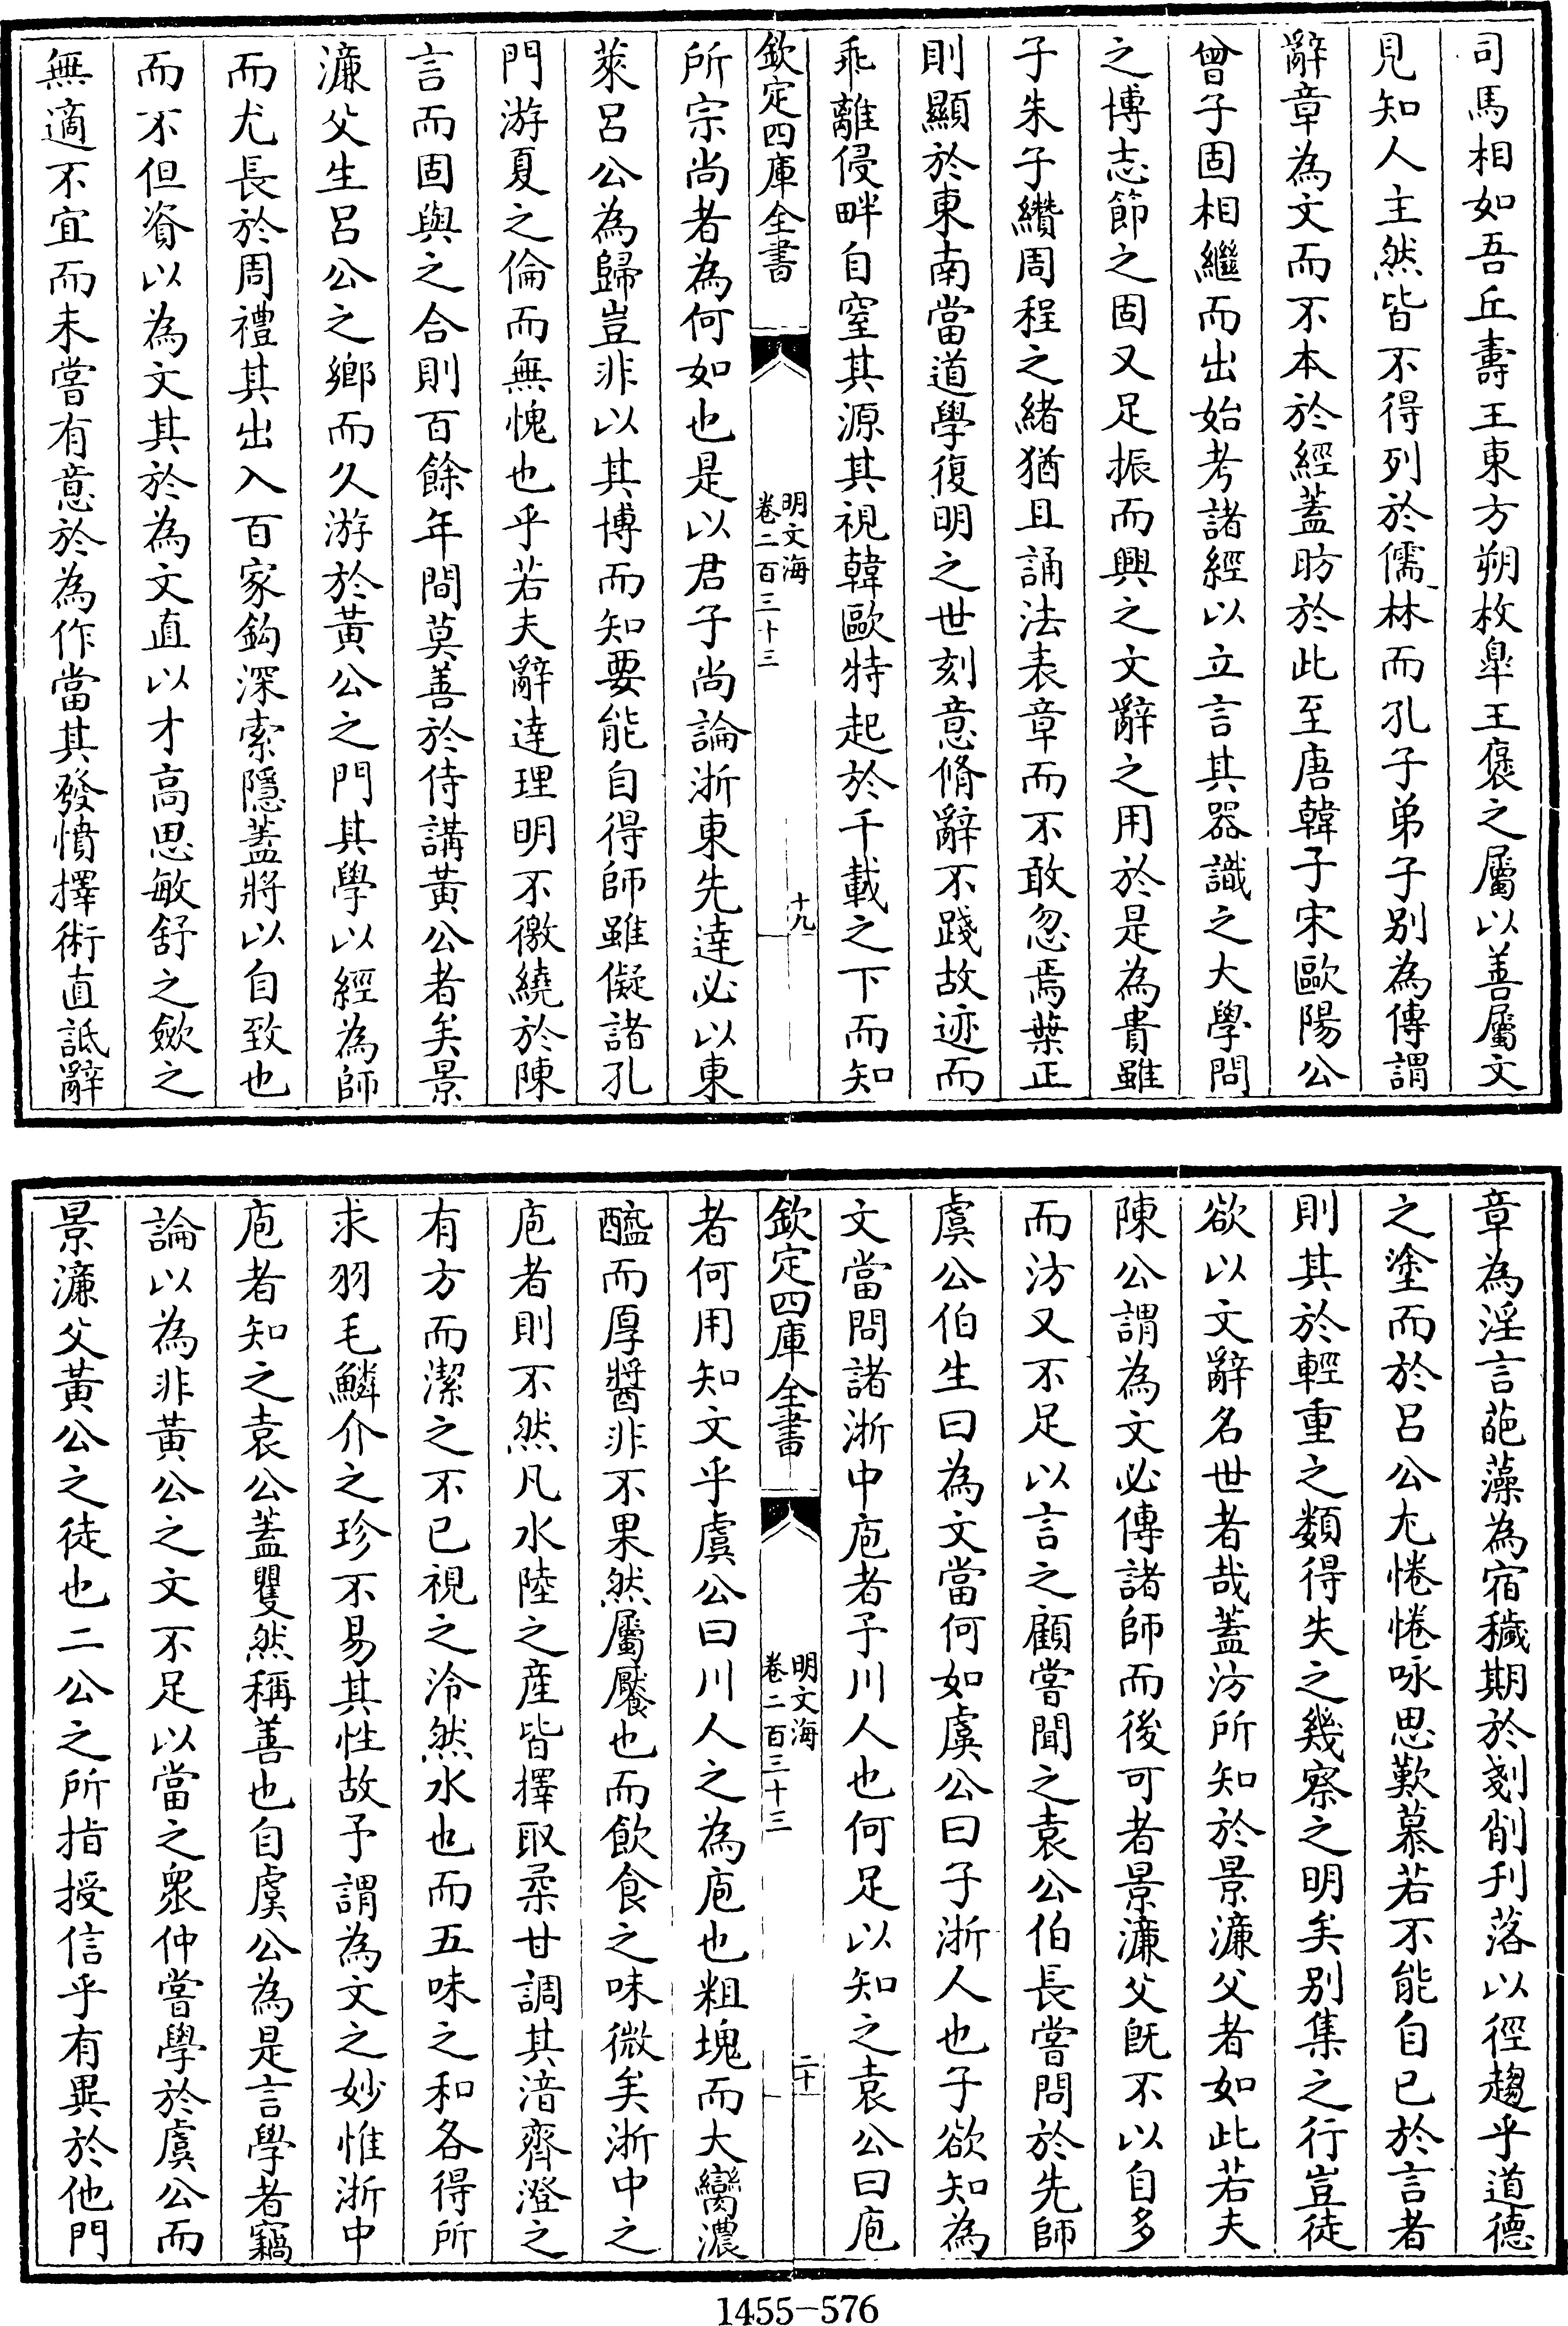 司馬相如吾丘壽王東方朔枚臯王褒之屬以善屬文
見知人主然皆不得列於儒林而孔子弟子别為傳謂
辭章為文而不本於經蓋昉於此至唐韓子宋歐陽公
曾子固相繼而出始考諸經以立言其器識之大學問
之博志節之固又足振而興之文辭之用於是為貴雖
子朱子纘周程之緒猶且誦法表章而不敢忽焉葉正
則顯於東南當道學復明之世刻意脩辭不踐故迹而
乖離侵畔自窒其源其視韓歐特起於千載之下而知
欽定四庫全書
明文海
卷二百三十三
十九
所宗尚者為何如也是以君子尚論浙東先逹必以東
萊呂公為歸豈非以其博而知要能自得師雖儗諸孔
門游夏之倫而無愧也乎若夫辭逹理明不徼繞於陳
言而固與之合則百餘年間莫善於侍講黄公者矣景
濂父生呂公之鄉而久游於黄公之門其學以經為師
而尤長於周禮其出入百家鈎深索隱蓋將以自致也
而不但資以為文其於為文直以才高思敏舒之斂之
無適不宜而未嘗有意於為作當其發憤擇術直詆辭
章為淫言葩藻為宿穢期於剗削刋落以徑趨乎道德
之塗而於呂公尤惓惓咏思歎慕若不能自已於言者
則其於輕重之類得失之幾察之明矣别集之行豈徒
欲以文辭名世者哉蓋汸所知於景濂父者如此若夫
陳公謂為文必傳諸師而後可者景濂父旣不以自多
而汸又不足以言之顧嘗聞之袁公伯長嘗問於先師
虞公伯生曰為文當何如虞公曰子浙人也子欲知為
文當問諸浙中庖者子川人也何足以知之袁公曰庖
欽定四庫全書
明文海
卷二百三十三
二十
者何用知文乎虞公曰川人之為庖也粗塊而大臠濃
醯而厚醬非不果然屬饜也而飲食之味微矣浙中之
庖者則不然凡水陸之産皆擇取柔甘調其湆齊澄之
有方而潔之不已視之泠然水也而五味之和各得所
求羽毛鱗介之珍不易其性故予謂為文之妙惟浙中
庖者知之袁公蓋瞿然稱善也自虞公為是言學者竊
論以為非黄公之文不足以當之衆仲嘗學於虞公而
景濂父黄公之徒也二公之所指授信乎有異於他門
1455-576